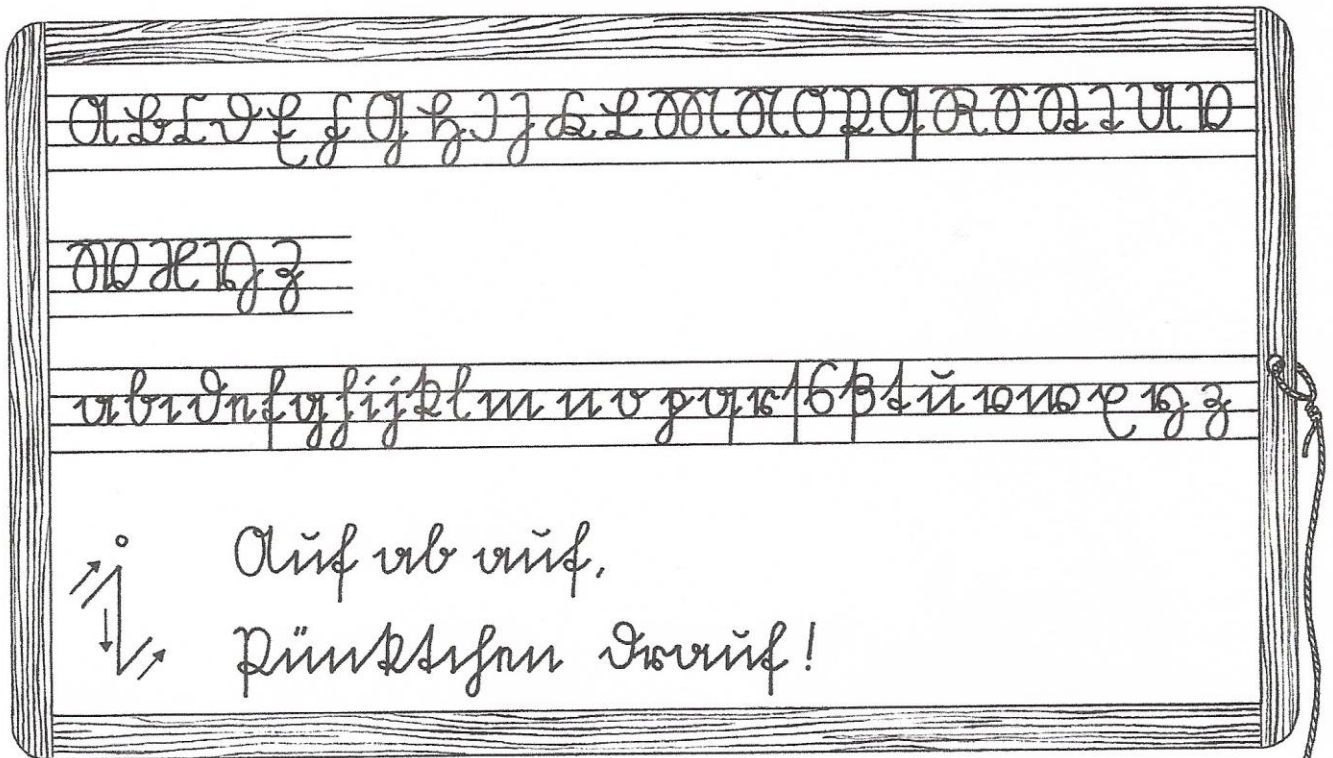 A B C D E F G H I J K L M N O P Q R S St T U V
W X Y Z
a b c d e f g h i j k l m n o p q r ſ s ß t u v w x y z
Auf ab auf,
Pünktchen drauf!